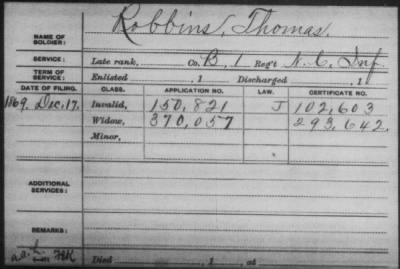 NAME OF SOLDIER: Robbins, Thomas.
SERVICE: Late rank, Co. B, 1 Reg't N. C. Inf.
TERM OF SERVICE: Enlisted , 1 Discharged , 1
DATE OF FILING. CLASS. APPLICATION NO. LAW. CERTIFICATE NO.
1869. Dec. 17. Invalid, 150,821 J 102,603
Widow, 370,057 293,642.
Minor,
ADDITIONAL SERVICES:
REMARKS:
Died , 1 , at